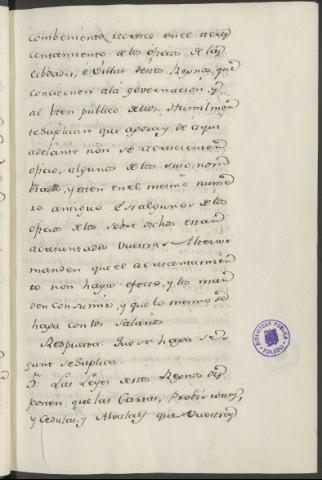 combeniente recresce en el acres
centamiento de los oficios de las
Cibdades, é Villas destos Reynos, que
conciernen á la governacion, y
al bien público dellos. Humilmente
te suplican que ahora, y de aqui
adelante non se acrescienten
oficios algunos de los suso nom
brados, y esten en el mesmo nume
ro antiguo. E si algunos de los
oficios de los sobre dichos estan
acrescentados Vuestras Altezas
manden que el acrescentamien
to non haya efecto, y los man
den consumir, y que lo mesmo se
haga con los Salarios.
Respuesta: Que se haga se
gunt se suplica.
Las Leyes destos Reynos dis
ponen, que las Cartas, Probisiones,
y Cedulas, y Alvalaes que Vuestras
BIBLIOTECA PÚBLICA
TOLEDO